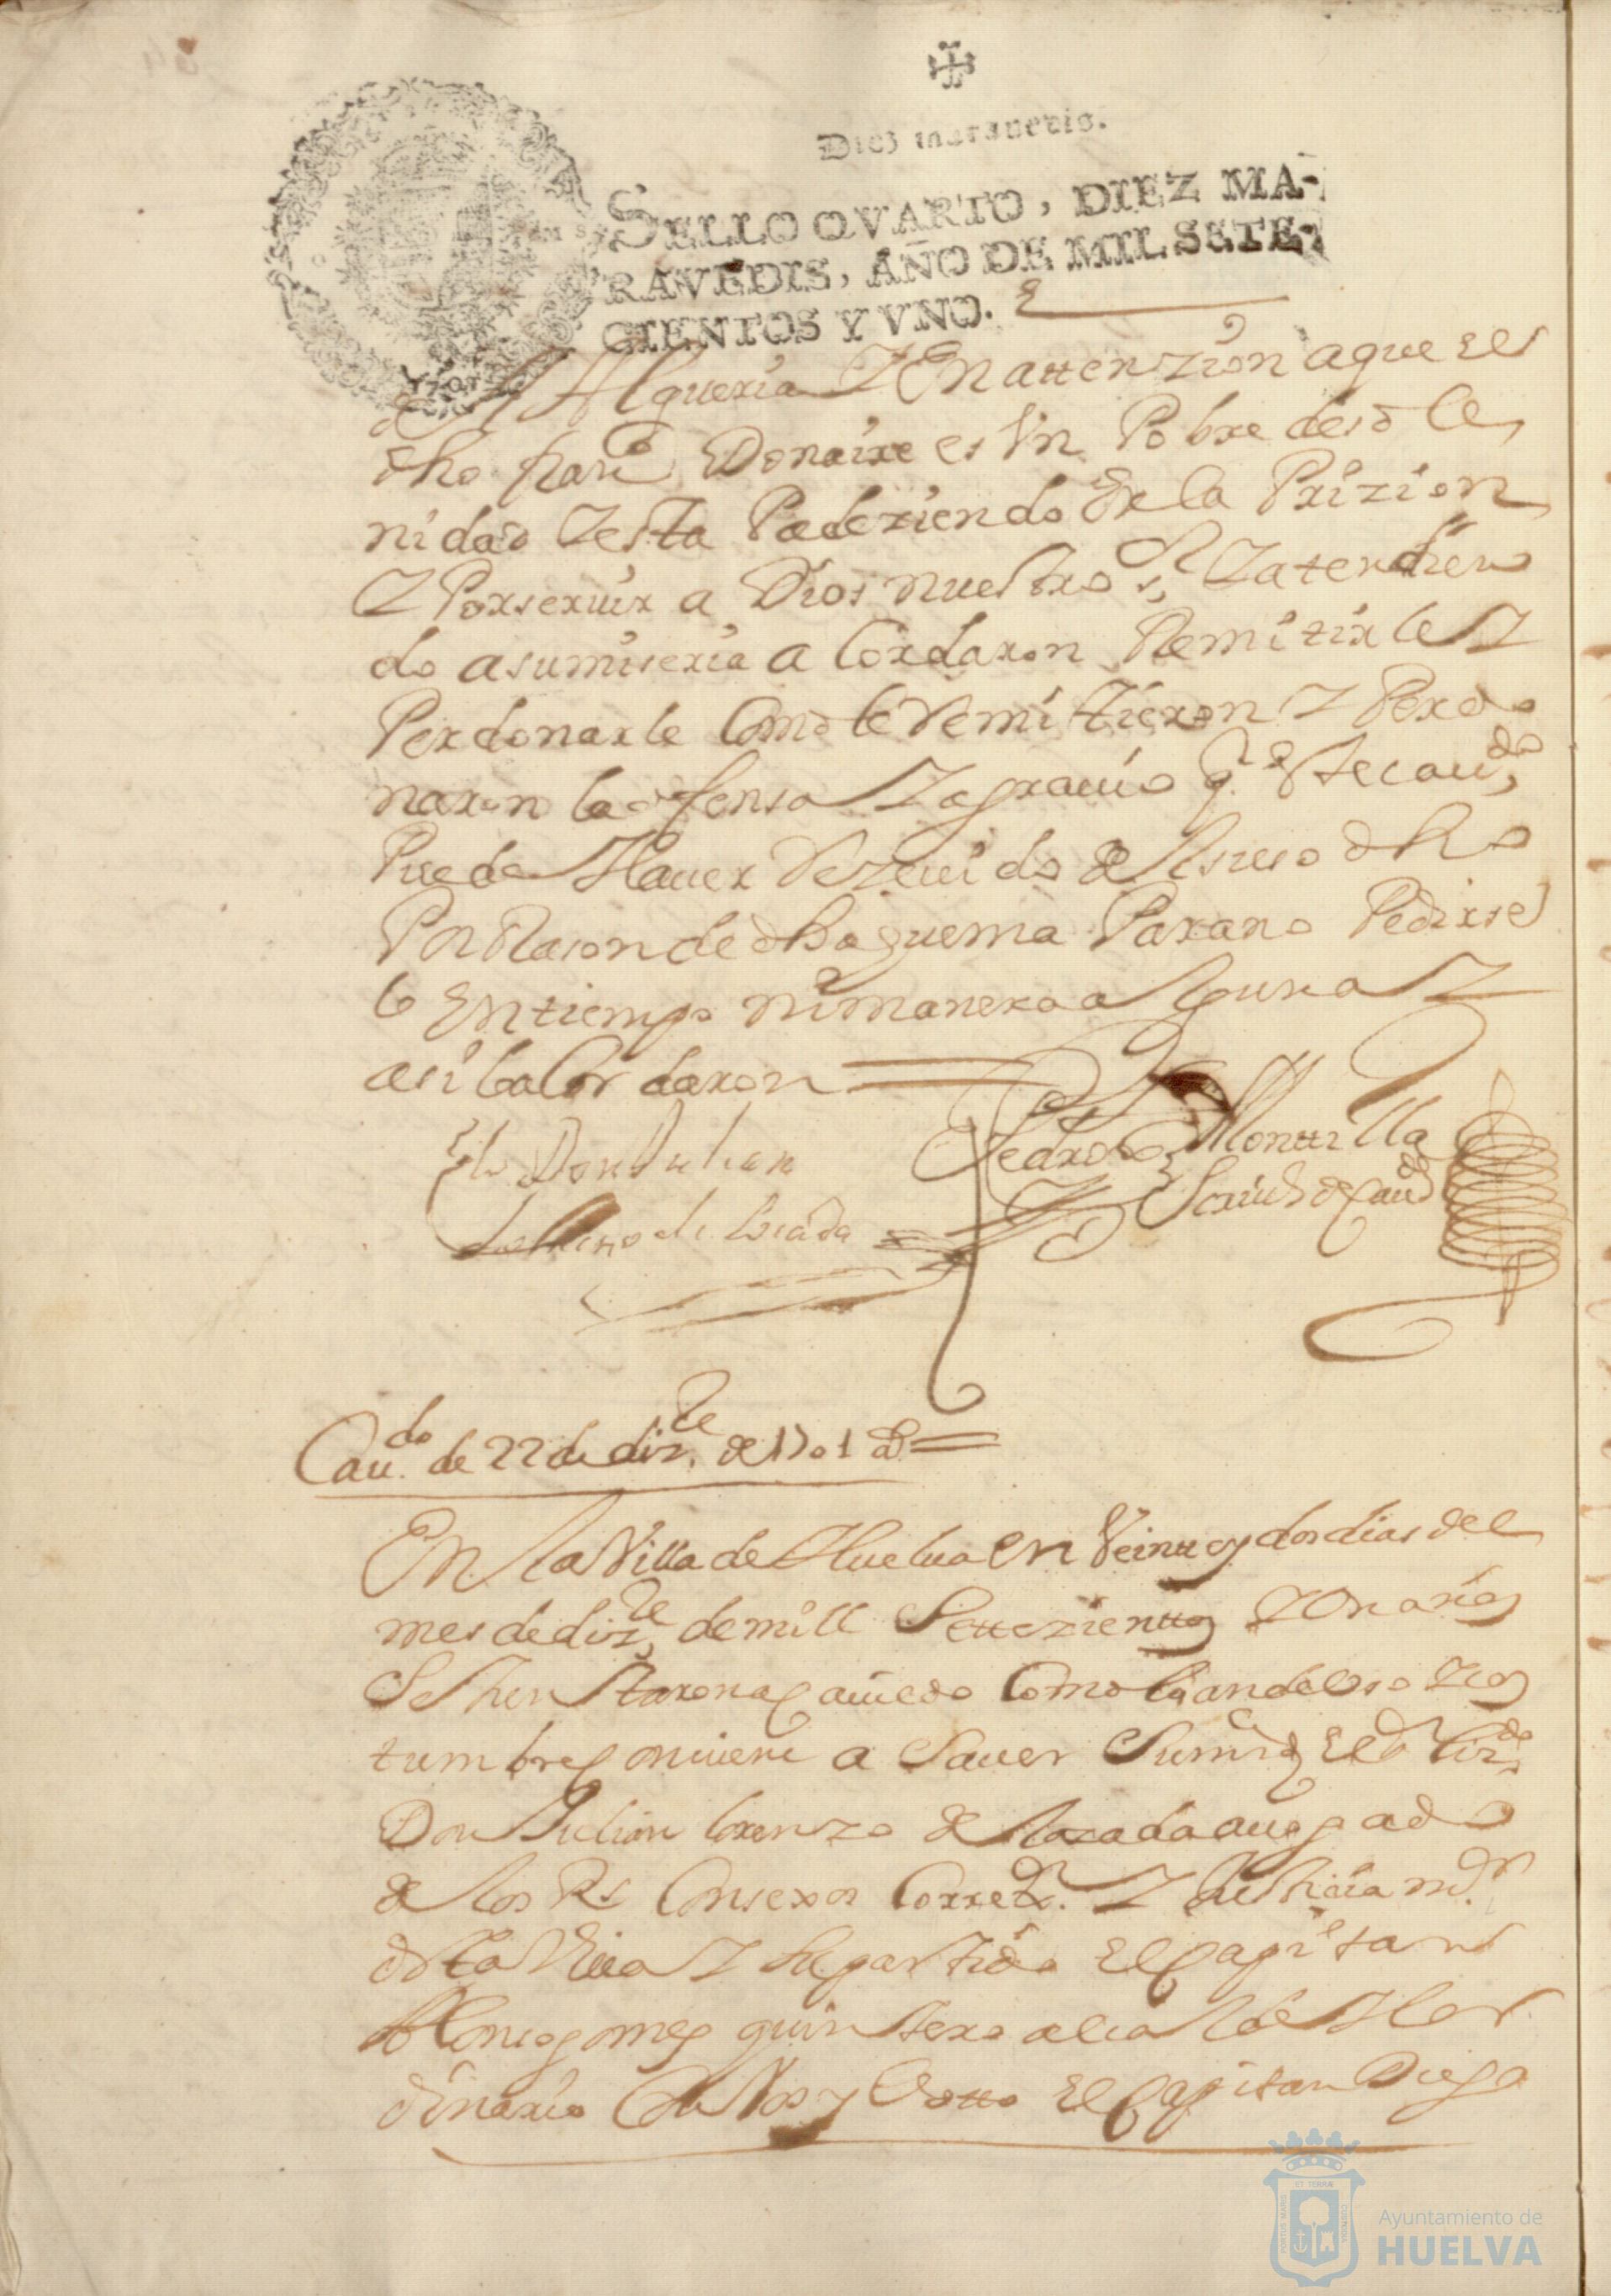 Diez maravedis.
SELLO QVARTO, DIEZ MA-
RAVEDIS, AÑO DE MIL SETE-
CIENTOS Y VNO.
de Alqueria Y En attenzion aque el
dho Donaire es Vn Pobre desole
nidad Y esta Padeziendo En la Prizion
Y Porseruir a Dios nuestro sr Y atendien
do asumiseria a Cordaron Remitirle Y
Perdonarle Como le Remittieron Y Perdo
naron la ofensa Y agrauio q. Este caudo
Puede Hauer Rezeuido del suso dho
Por Rason de dha quema Parano Pedirse
lo En tiempo ni manera alguna Y
asi lo a Cordaron
El Ldo Don Julian
Lorenzo de Losada
Pedro Monttilla
Scriuo de Caudo
Caudo de 22 de dizre de 1701 as
En la Villa de Huelua en Veintte y dos dias del
mes de dizre de mill Settezienttos Y Un años
Se Juntaron a cauildo Como lo an de Uso Y cos
tumbre conuiene a Sauer Sumrd El Sr Lizdo
Don Julian lorenzo de Losada auogado
de los Rs Consexos Corredr. Y Justicia mr
desta Villa Y Su partido El Capitan
Alonso gomez quintero alcalde Hor
dinario Carlos y Clotto El Capitan Diego
Ayuntamiento de
HUELVA